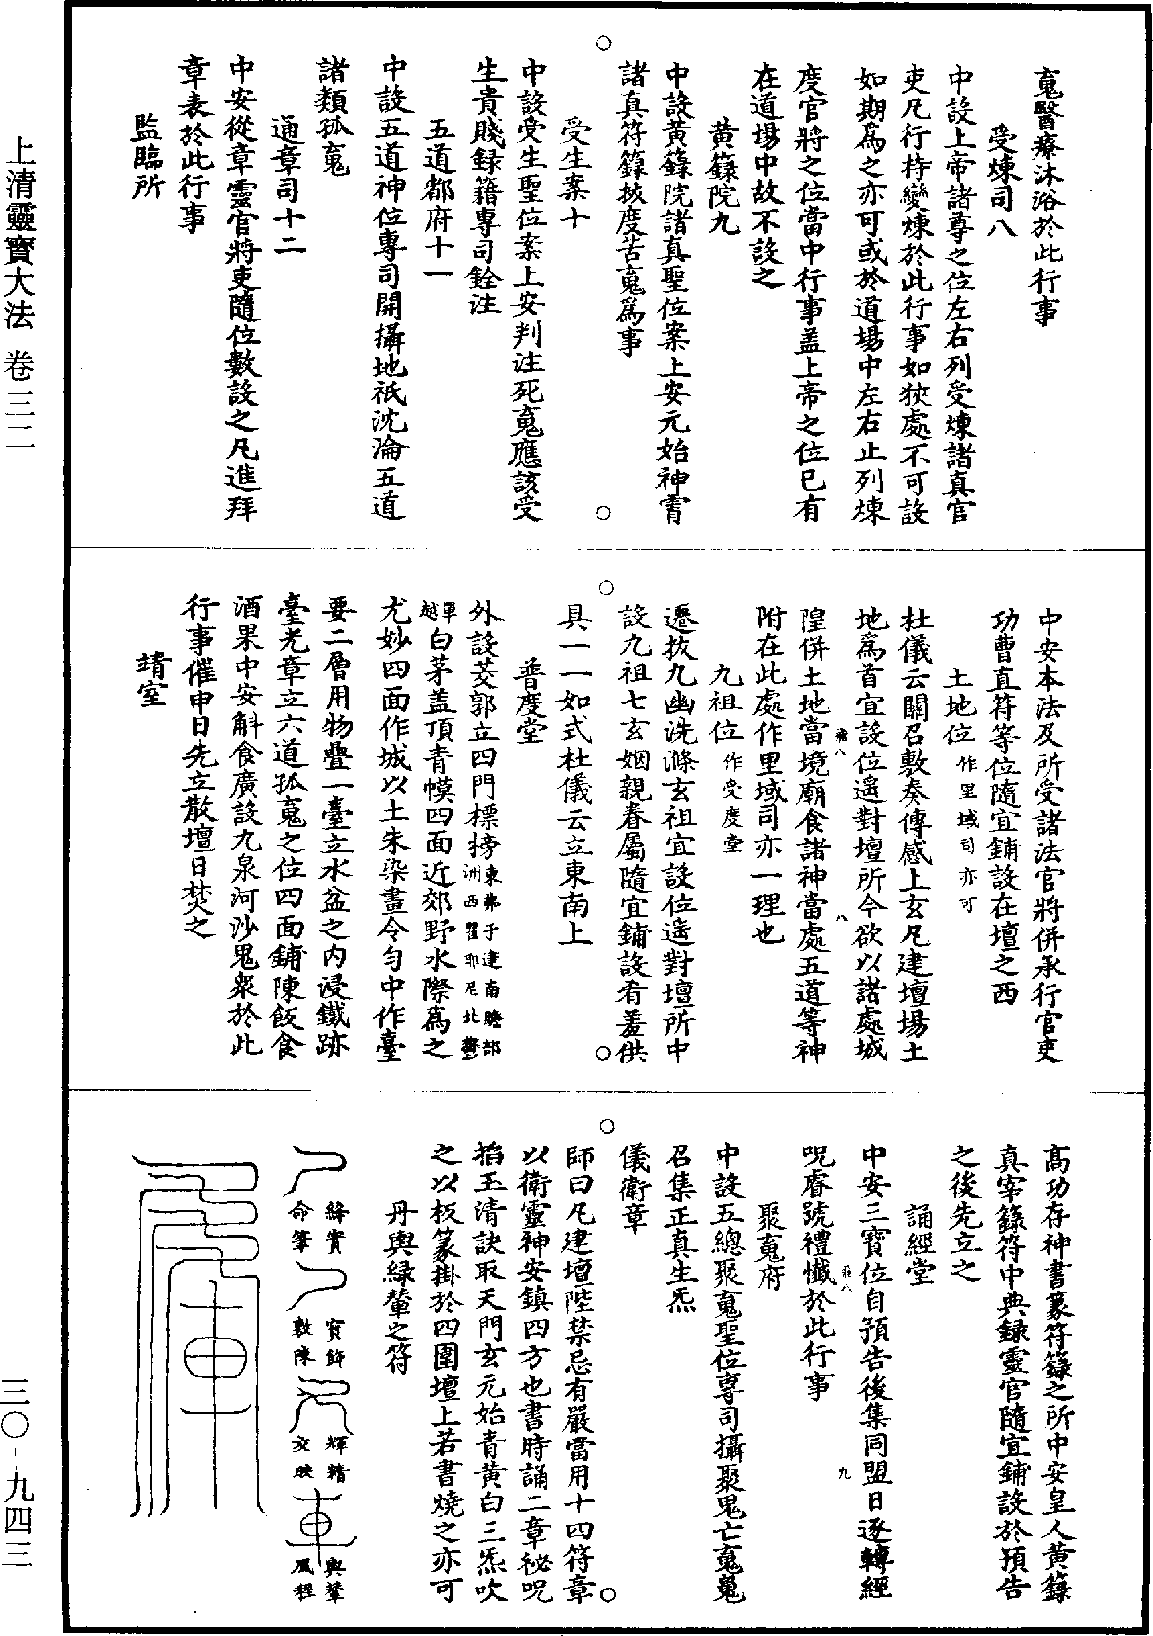 上清靈寳大法 卷三二
三〇-九四三
䰟醫療沐浴於此行事
受煉司八
中設上帝諸尊之位左右列受煉諸真官
吏凡行持變煉於此行事如狹處不可設
如期爲之亦可或於道場中左右止列煉
度官將之位當中行事盖上帝之位已有
在道場中故不設之
黃籙院九
中設黃籙院諸真聖位案上安元始神霄
諸真符籙拔度苦䰟爲事
受生案十
中設受生聖位案上安判注死䰟應該受
生貴賤録籍專司銓注
五道都府十一
中設五道神位專司開攝地祇沈淪五道
諸類孤䰟
通章司十二
中安從章靈官將吏隨位數設之凡進拜
章表於此行事
監臨所
中安本法及所受諸法官將併承行官吏
功曹直符等位隨宜鋪設在壇之西
土地位 作里域司亦可
杜儀云關召敷奏傳感上玄凡建壇場土
地爲首宜設位遥對壇所今欲以諸處城
隍併土地當境廟食諸神當處五道等神
附在此處作里域司亦一理也
九祖位 作受度堂
遷拔九幽洗滌玄祖宜設位遥對壇所中
設九祖七玄姻親眷屬隨宜鋪設肴羞供
具一一如式杜儀云立東南上
普度堂
外設茭郭立四門標榜東弗于逮南贍部洲西瞿耶尼北鬱
單越白茅盖頂青幙四面近郊野水際爲之
尤妙四面作城以土朱染畫令勻中作臺
要二層用物疊一臺立水盆之内浸鐵跡
臺光章立六道孤䰟之位四面鋪陳飯食
酒果中安斛食廣設九泉河沙鬼衆於此
行事催申日先立散壇日焚之
靖室
高功存神書篆符籙之所中安皇人黃籙
真宰籙符中典録靈官隨宜鋪設於預告
之後先立之
誦經堂
中安三寶位自預告後集同盟日逐轉經
呪睿號禮懺於此行事
聚䰟府
中設五總聚䰟聖位専司攝聚鬼亡䰟䰡
召集正真生炁
儀衛章
師曰凡建壇陛禁忌有嚴當用十四符章
以衛靈神安鎮四方也書時誦二章祕呪
掐玉清訣取天門玄元始青黃白三炁吹
之以板篆掛於四圍壇上若書燒之亦可
丹輿緑輦之符
絳實命筆
寳飾敷陳
輝精交映
輿輦風程